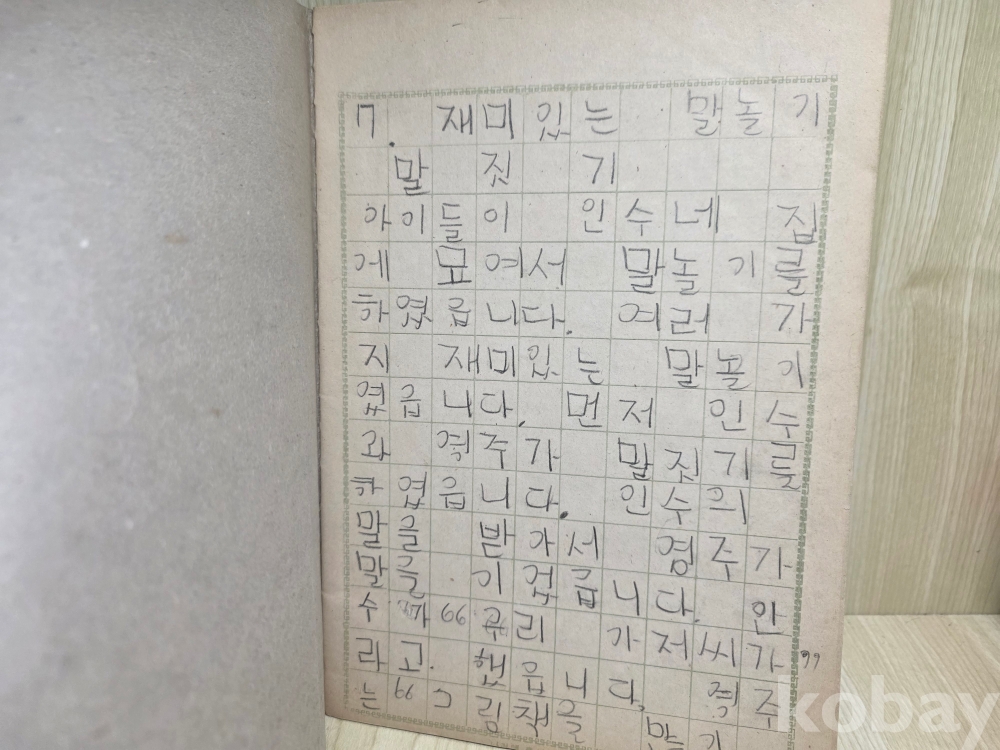 7. 재미있는 말놀기
말 짓 기
아이들이 인수네 집
에 묘여서 말놀기를
하였읍니다. 여러 가
지 재미있는 말놀이
였읍니다. 먼저 인수
과 영주가 말짓기를
하였읍니다. 인수의
말을 받아서 영주가
말을 기었급니다. 안
수 가 66 우리 가저씨가 99
라고. 했읍니다. 영주
는 99 김책을 만들기
kobay